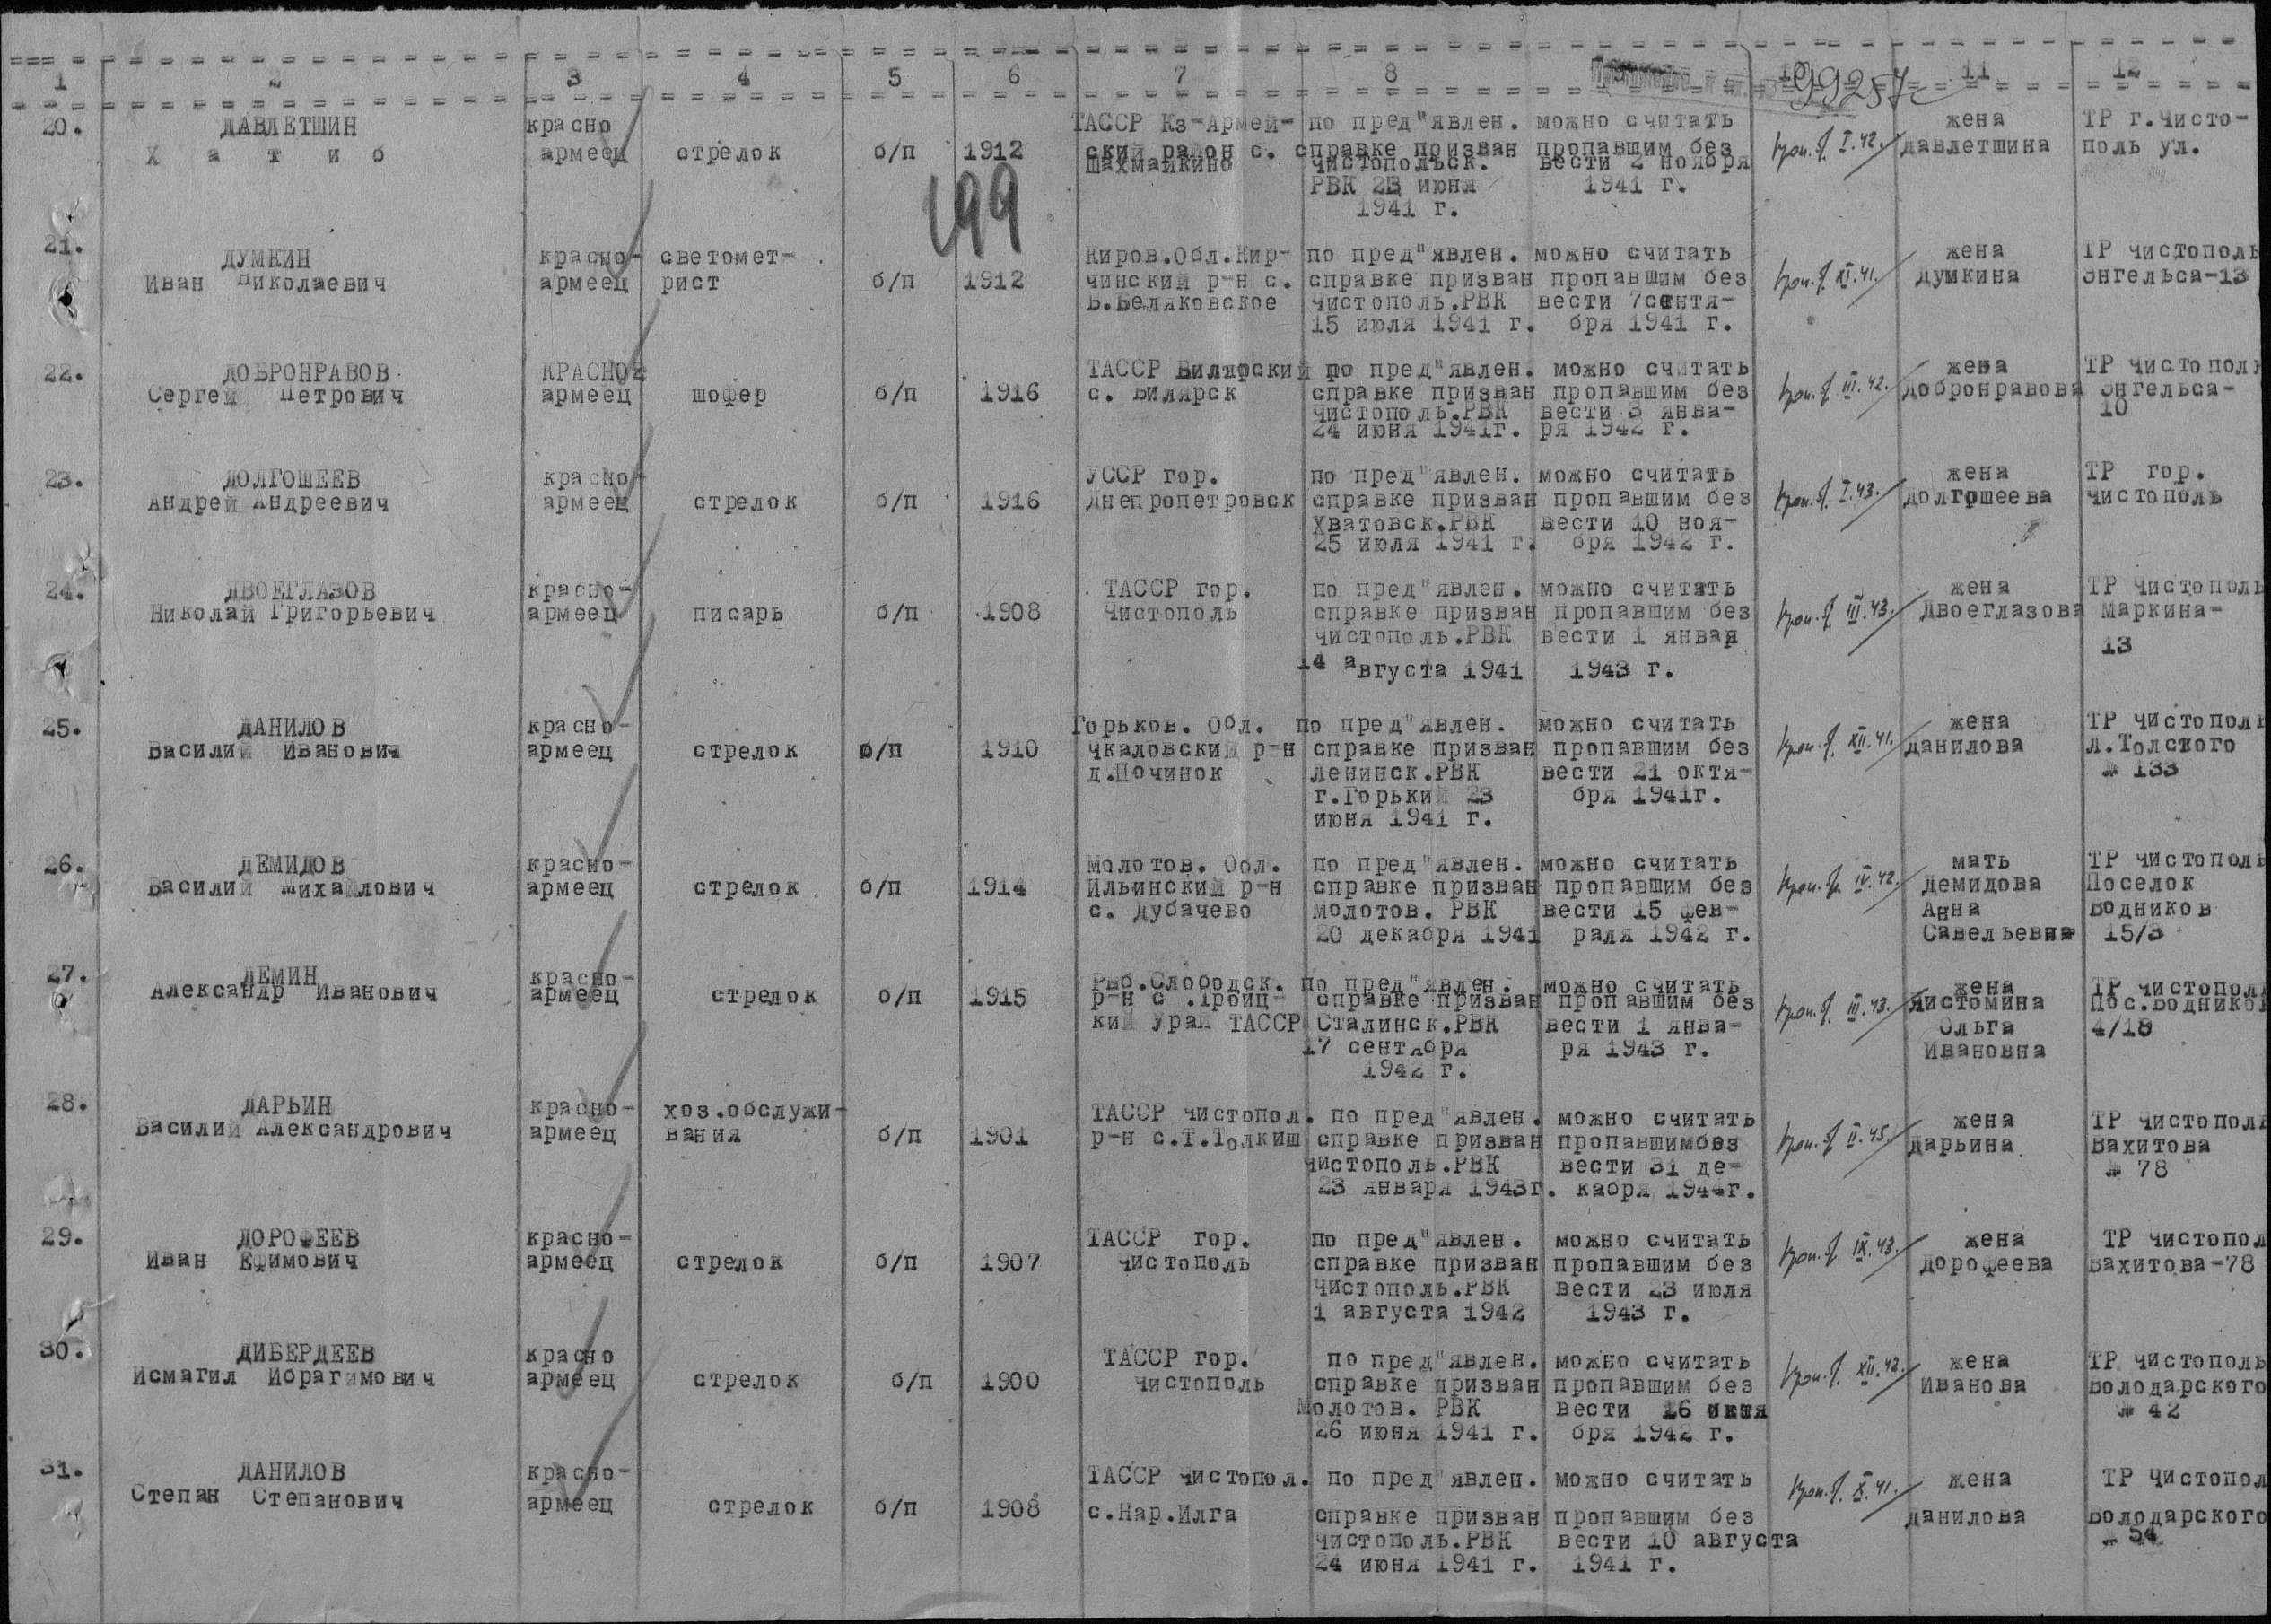 1 2 3 4 5 6 7 8 10 11 12
99257с
199
20. ДАВЛЕТШИН красно ТАССР Кз-Армей- по пред"явлен. можно считать жена ТР г.Чисто-
Х а т и б армеец стрелок б/п 1912 ский район с. справке призван пропавшим без проп. I.42. Давлетшина поль ул.
Шахмайкино Чистопольск. вести 2 ноября
РВК 23 июня 1941 г.
1941 г.
21. ДУМКИН красно- светомет- Киров.Обл.Кир- по пред"явлен. можно считать жена ТР Чистополь
Иван Николаевич армеец рист б/п 1912 чинский р-н с. справке призван пропавшим без проп. XI.41. Думкина Энгельса-13
Б.Беляковское Чистополь.РВК вести 7сентя-
15 июля 1941 г. бря 1941 г.
22. ДОБРОНРАВОВ КРАСНО- ТАССР Билярский по пред"явлен. можно считать жена ТР Чистополь
Сергей Петрович армеец шофер б/п 1916 с. Билярск справке призван пропавшим без проп. III.42. Добронравова Энгельса-
Чистополь.РВК вести 3 янва- 10
24 июня 1941г. ря 1942 г.
23. ДОЛГОШЕЕВ красно- УССР гор. по пред"явлен. можно считать жена ТР гор.
Андрей Андреевич армеец стрелок б/п 1916 Днепропетровск справке призван пропавшим без проп. I.43. Долгошеева Чистополь
Хватовск.РВК вести 10 ноя-
25 июля 1941 г. бря 1942 г.
24. ДВОЕГЛАЗОВ красно- ТАССР гор. по пред"явлен. можно считать жена ТР Чистополь
Николай Григорьевич армеец писарь б/п 1908 Чистополь справке призван пропавшим без проп. III.43. Двоеглазова Маркина-
Чистополь.РВК вести 1 январ 13
14 августа 1941 1943 г.
25. ДАНИЛОВ красно- Горьков. Обл. по пред"явлен. можно считать жена ТР Чистополь
Василий Иванович армеец стрелок б/п 1910 Чкаловский р-н справке призван пропавшим без проп. XII.41. Данилова Л.Толстого
д.Починок Ленинск.РВК вести 21 октя- № 133
г.Горький 23 бря 1941г.
июня 1941 г.
26. ДЕМИДОВ красно- Молотов. Обл. по пред"явлен. можно считать мать ТР Чистополь
Василий Михайлович армеец стрелок б/п 1914 Ильинский р-н справке призван пропавшим без проп. IV.42. Демидова Поселок
с. Дубачево Молотов. РВК вести 15 фев- Анна Водников
20 декабря 1941 раля 1942 г. Савельевна 15/3
27. ДЕМИН красно- Рыб.Слободск. по пред"явлен. можно считать жена ТР Чистополь
Александр Иванович армеец стрелок б/п 1915 р-н с .Троиц- справке призван пропавшим без проп. III.43. Чистомина Пос.Водников
кий Урай ТАССР Сталинск.РВК вести 1 янва- Ольга 4/18
17 сентября ря 1943 г. Ивановна
1942 г.
28. ДАРЬИН красно- хоз.обслужи- ТАССР Чистопол. по пред"явлен. можно считать жена ТР Чистополь
Василий Александрович армеец вания б/п 1901 р-н с.Т.Толкиш справке призван пропавшимбез проп. II.45. Дарьина Вахитова
Чистополь.РВК вести 31 де- № 78
23 января 1943г. кабря 1944г.
29. ДОРОФЕЕВ красно- ТАССР гор. по пред"явлен. можно считать жена ТР Чистопол
Иван Ефимович армеец стрелок б/п 1907 Чистополь справке призван пропавшим без проп. IX.43. Дорофеева Вахитова-78
Чистополь.РВК вести 23 июля
1 августа 1942 1943 г.
30. ДИБЕРДЕЕВ красно ТАССР гор. по пред"явлен. можно считать жена ТР Чистополь
Исмагил Ибрагимович армеец стрелок б/п 1900 Чистополь справке призван пропавшим без проп. XII.42. Иванова Володарского
Молотов. РВК вести 16 октя № 42
26 июня 1941 г. бря 1942 г.
31. ДАНИЛОВ красно- ТАССР Чистопол. по пред"явлен. можно считать жена ТР Чистопол
Степан Степанович армеец стрелок б/п 1908 с.Нар.Илга справке призван пропавшим без проп. X.41. Данилова Володарского
Чистополь.РВК вести 10 августа № 54
24 июня 1941 г. 1941 г.